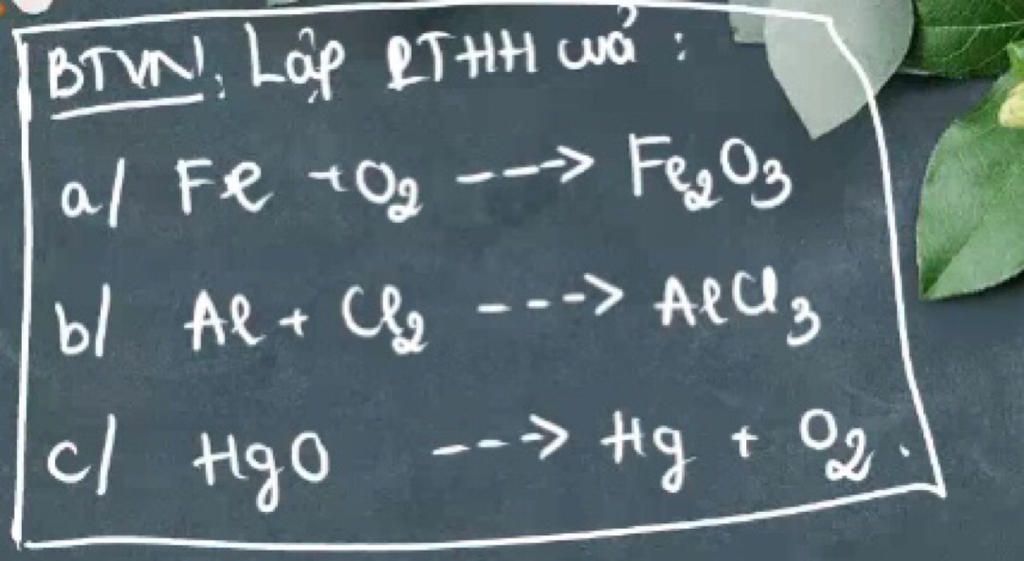 BTVN: Lập PTHH của :
a/ Fe + O₂ ---> Fe₂O₃
b/ Al + Cl₂ ---> AlCl₃
c/ HgO ---> Hg + O₂.